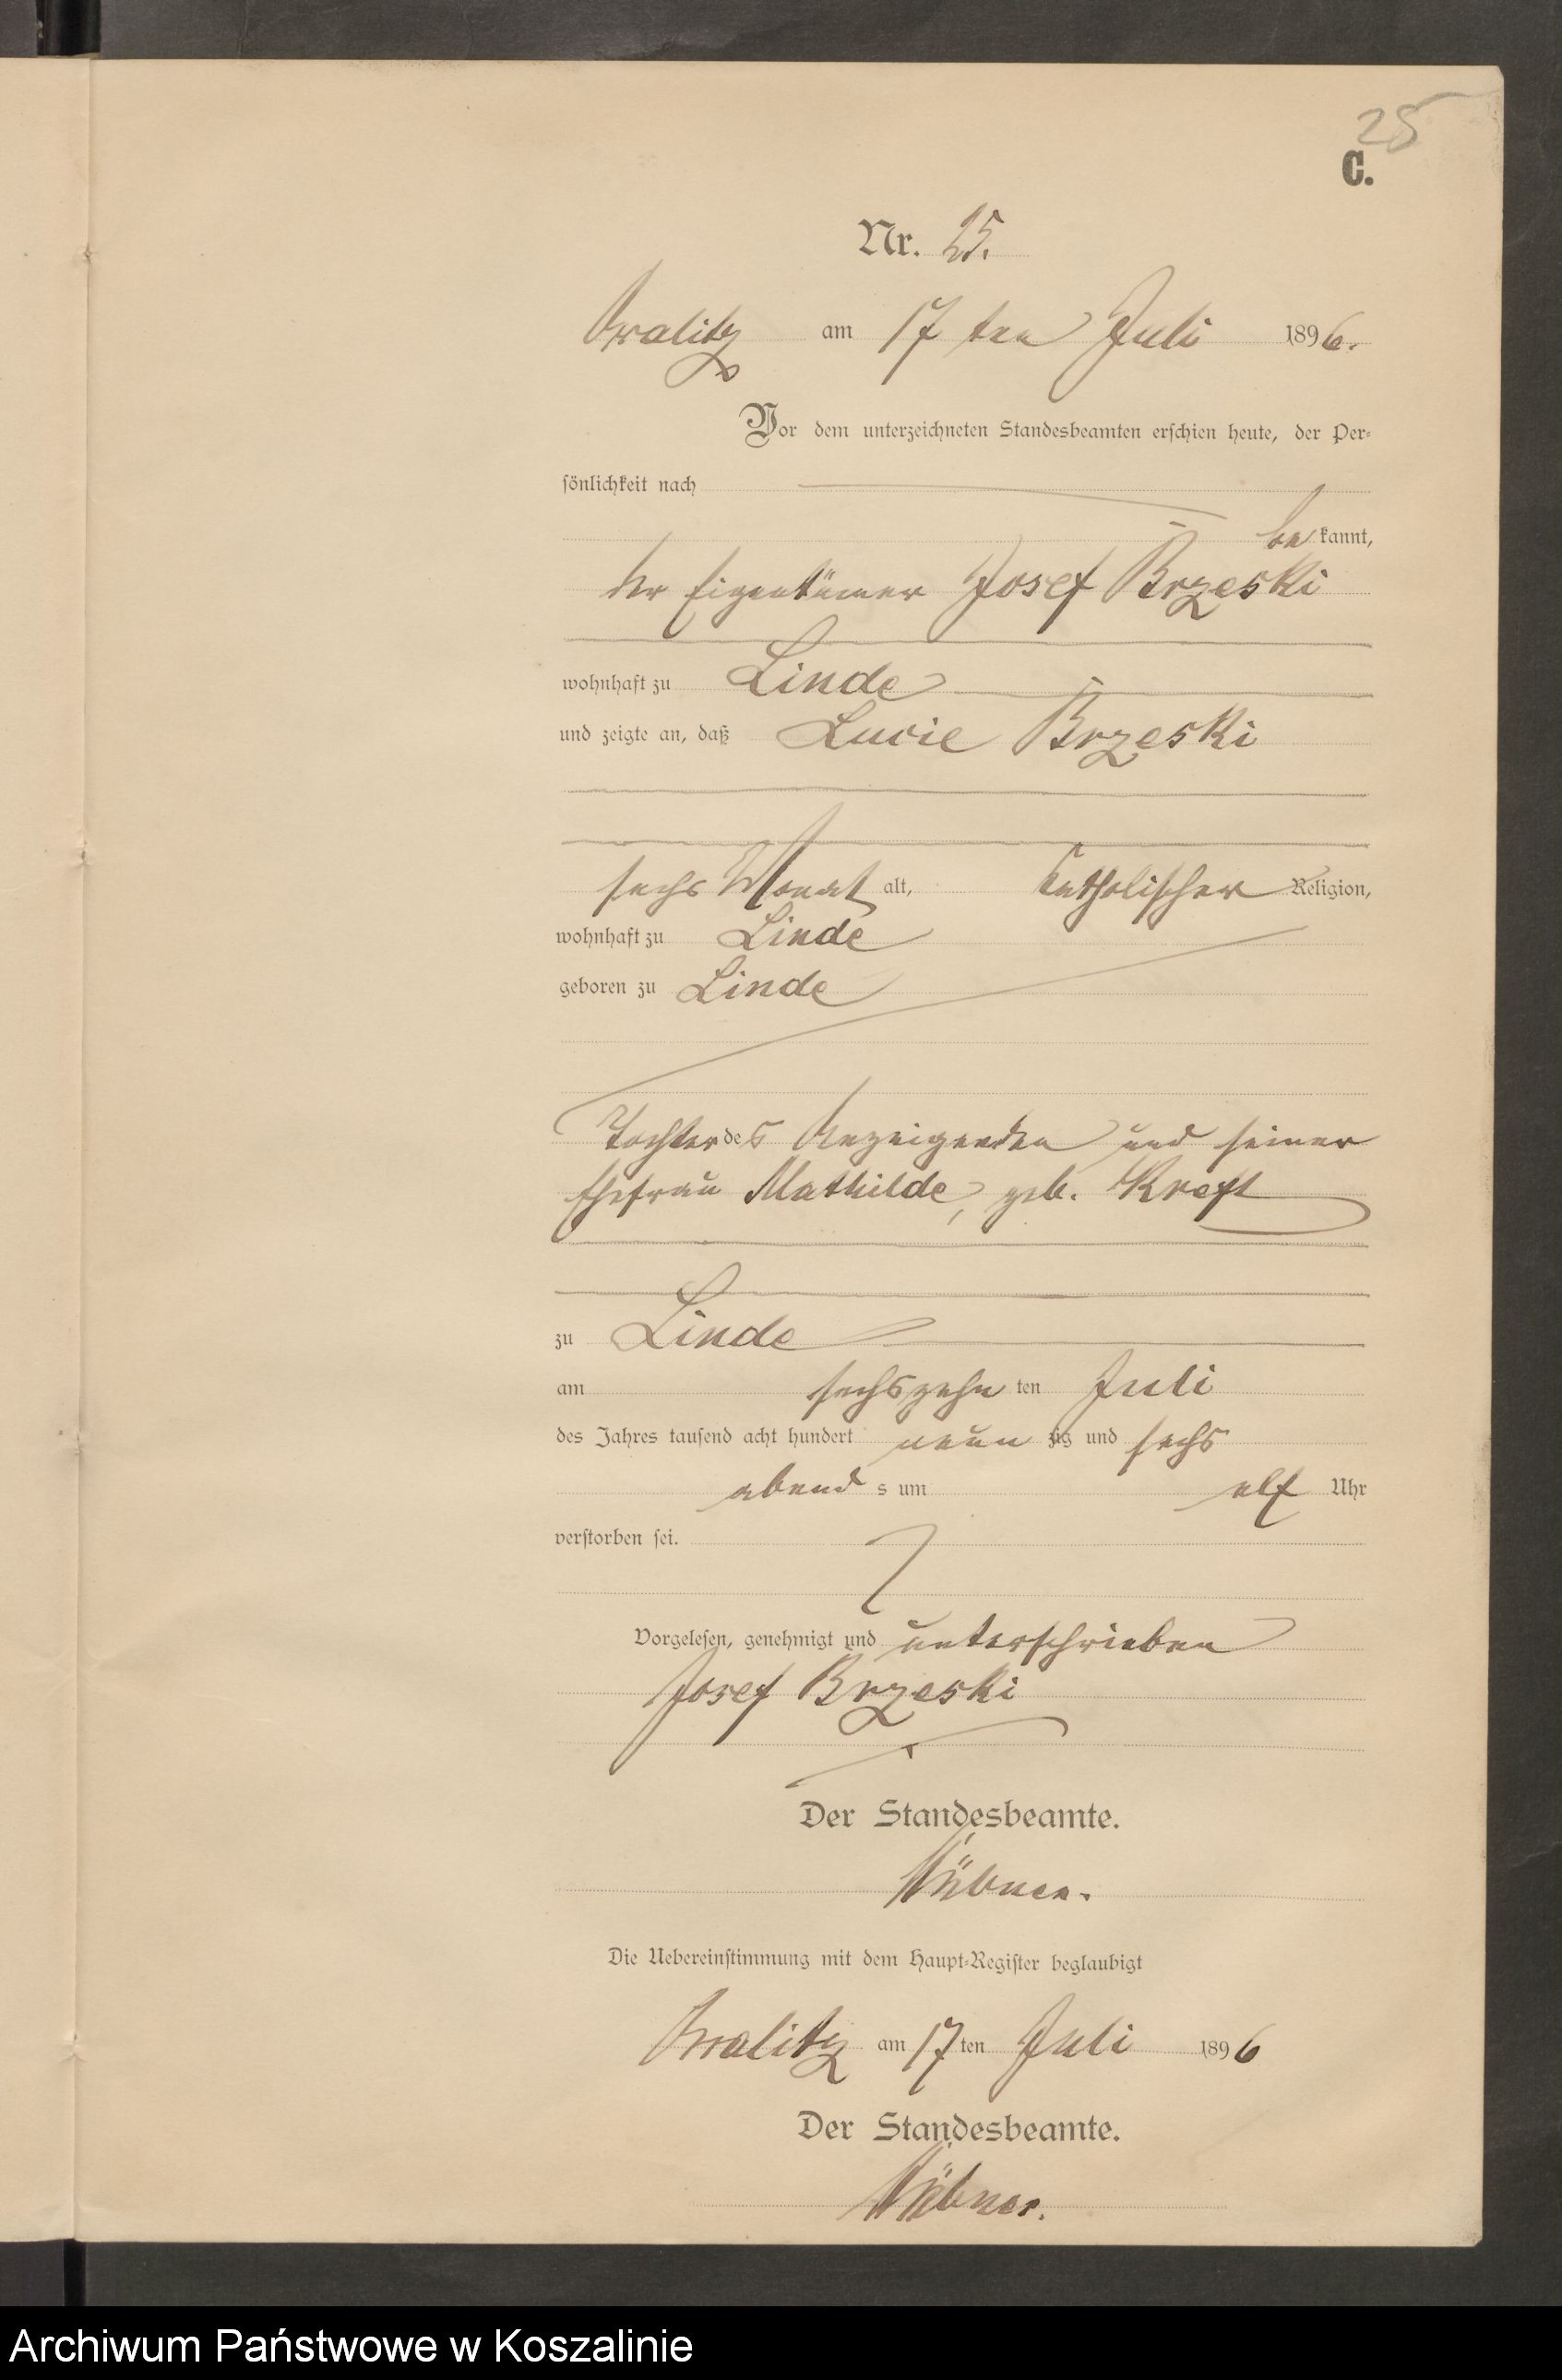 25
C.
Nr. 25.
am 17 ten Juli 1896.
Vor dem unterzeichneten Standesbeamten erschien heute, der Per-
sönlichkeit nach
be kannt,
der Eigentümer Josef Brzeski
wohnhaft zu Linde
und zeigte an, daß Lucie Brzeski
sechs Monat alt, katholischer Religion,
wohnhaft zu Linde
geboren zu Linde
Tochter des Anzeigenden und seiner
Ehefrau Mathilde, geb. Kreft
zu Linde
am sechszehn ten Juli
des Jahres tausend acht hundert neun zig und sechs
abend s um elf Uhr
verstorben sei.
Vorgelesen, genehmigt und unterschrieben
Josef Brzeski
Der Standesbeamte.
Die Uebereinstimmung mit dem Haupt-Register beglaubigt
am 17 ten Juli 1896
Der Standesbeamte.
Archiwum Państwowe w Koszalinie